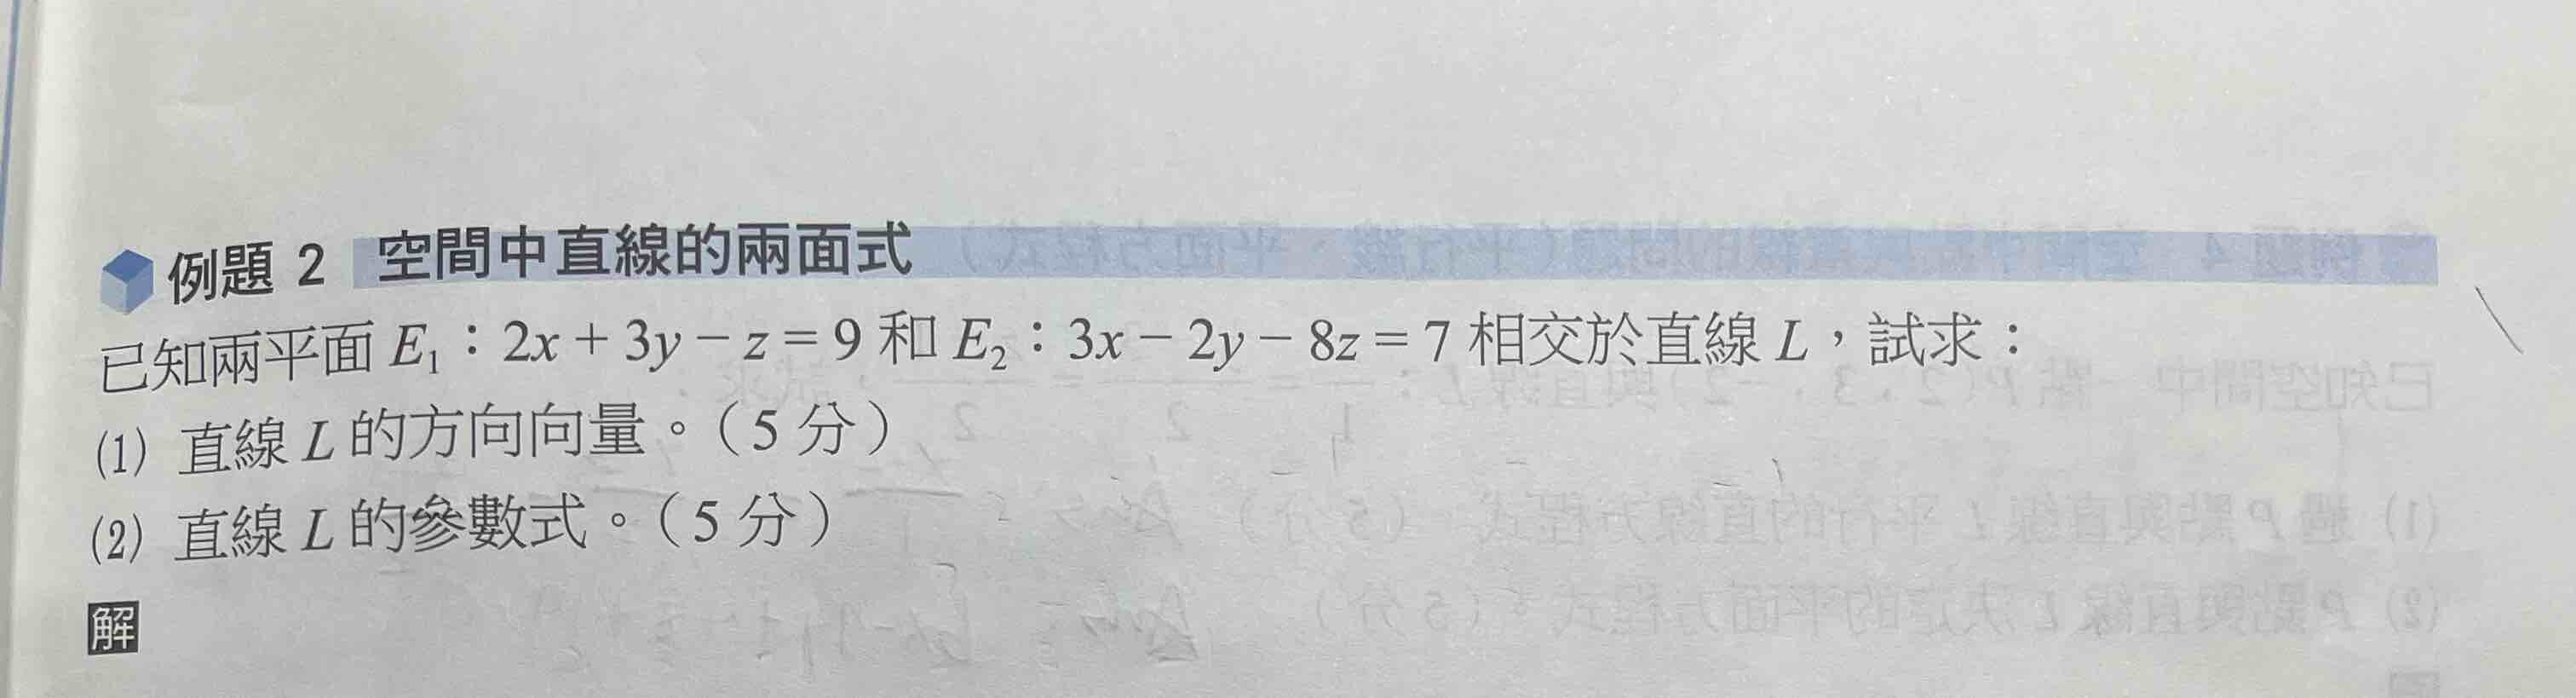 例題 2 空間中直線的兩面式
已知兩平面 E₁：2x + 3y − z = 9 和 E₂：3x − 2y − 8z = 7 相交於直線 L，試求：
(1) 直線 L 的方向向量。（5 分）
(2) 直線 L 的參數式。（5 分）
解